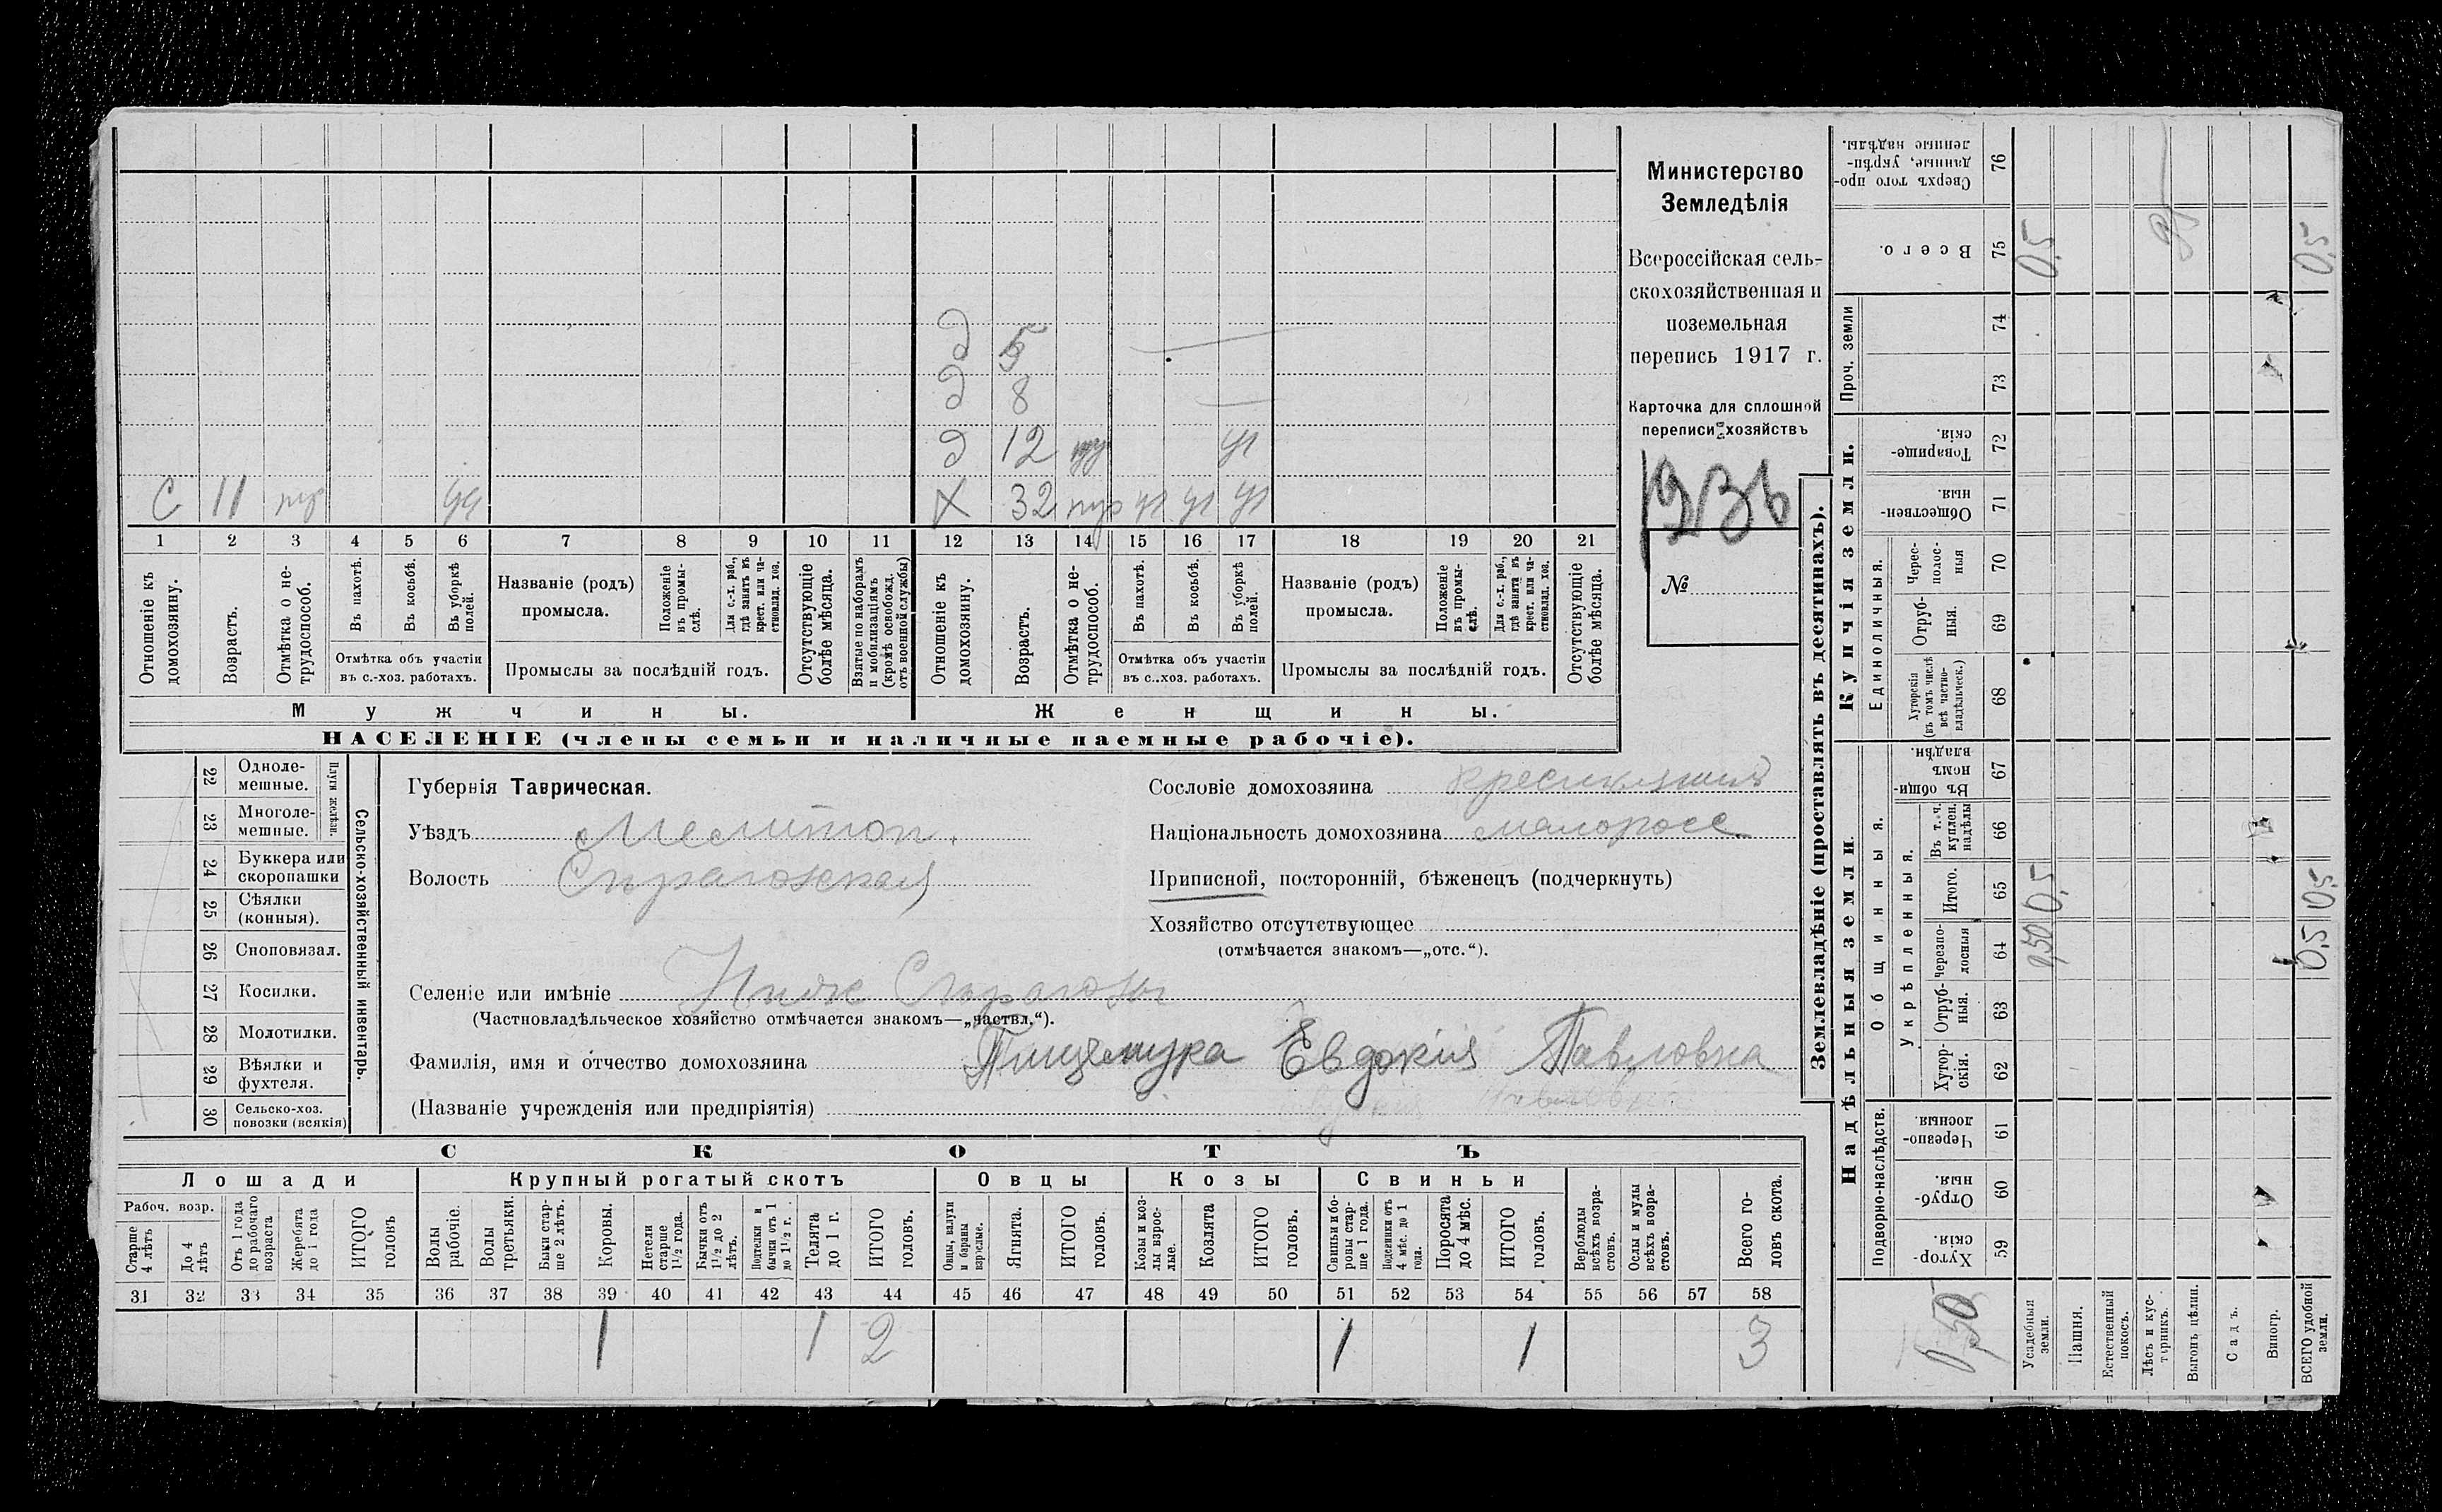 Министерство
Земледѣлія
Всероссійская сель-
скохозяйственная и
поземельная
перепись 1917 г.
Карточка для сплошной
переписи хозяйствъ
№
д 5
д 8
д 12
С 11
Х 32
1 2 3 4 5 6 7 8 9 10 11 12 13 14 15 16 17 18 19 20 21
Отношеніе къ домохозяину.
Возрастъ.
Отмѣтка о не-трудоспособ.
Въ пахотѣ.
Въ косьбѣ.
Въ уборкѣ полей.
Отмѣтка объ участіи
въ с.-хоз. работахъ.
Названіе (родъ)
промысла.
Положеніе въ промы-слѣ.
Для с.-х. раб., гдѣ занятъ въ крест. или ча-стновлад. хоз.
Промыслы за послѣдній годъ.
Отсутствующіе болѣе мѣсяца.
Взятые по наборамъ и мобилизаціямъ (кромѣ освобожд. отъ военной службы)
Отношеніе къ домохозяину.
Возрастъ.
Отмѣтка о не-трудоспособ.
Въ пахотѣ.
Въ косьбѣ.
Въ уборкѣ полей.
Отмѣтка объ участіи
въ с..хоз. работахъ.
Названіе (родъ)
промысла.
Положеніе въ промы-слѣ.
Для с.-х. раб., гдѣ занята въ крест. или ча-стновлад. хоз.
Промыслы за послѣдній годъ.
Отсутствующіе болѣе мѣсяца.
Мужчины.
Женщины.
НАСЕЛЕНІЕ (члены семьи и наличные наемные рабочіе).
22 Одноле-мешные.
23 Многоле-мешные.
Плуги желѣзн.
24 Буккера или скоропашки
25 Сѣялки (конныя).
26 Сноповязал.
27 Косилки.
28 Молотилки.
29 Вѣялки и фухтеля.
30 Сельско-хоз. повозки (всякія)
Сельско-хозяйственный инвентарь.
Губернія Таврическая.
Уѣздъ Мелитоп.
Волость
Селеніе или имѣніе
(Частновладѣльческое хозяйство отмѣчается знакомъ—„частвл.“).
Фамилія, имя и отчество домохозяина Евдокия Павловна
(Названіе учрежденія или предпріятія)
Сословіе домохозяина
Національность домохозяина малоросс
Приписной, посторонній, бѣженецъ (подчеркнуть)
Хозяйство отсутствующее
(отмѣчается знакомъ—„отс.“).
СКОТЪ
Лошади
Крупный рогатый скотъ
Овцы
Козы
Свиньи
Рабоч. возр.
Старше 4 лѣтъ
До 4 лѣтъ
Отъ 1 года до рабочаго возраста
Жеребята до 1 года
ИТОГО головъ
Волы рабочіе.
Волы третьяки.
Быки стар-ше 2 лѣтъ.
Коровы.
Нетели старше 1½ года.
Бычки отъ 1½ до 2 лѣтъ.
Подтелки и бычки отъ 1 до 1½ г.
Телята до 1 г.
ИТОГО головъ.
Овцы, валухи и бараны взрослые.
Ягнята.
ИТОГО головъ.
Козы и коз-лы взрос-лые.
Козлята
ИТОГО головъ.
Свиньи и бо-ровы стар-ше 1 года.
Подсвинки отъ 4 мѣс. до 1 года.
Поросята до 4 мѣс.
ИТОГО головъ.
Верблюды всѣхъ возра-стовъ.
Ослы и мулы всѣхъ возра-стовъ.
Всего го-ловъ скота.
31 32 33 34 35 36 37 38 39 40 41 42 43 44 45 46 47 48 49 50 51 52 53 54 55 56 57 58
1 1 2 1 1 3
Землевладѣніе (проставлять въ десятинахъ).
Надѣльныя земли
Купчія земли.
Проч. земли
Подворно-наслѣдств.
Общинныя.
Укрѣпленныя.
Единоличныя.
59 Хутор-скія.
60 Отруб-ныя.
61 Черезпо-лосныя
62 Хутор-скія.
63 Отруб-ныя.
64 Черезпо-лосныя
65 Итого.
66 Въ т. ч. куплен. надѣлы
67 Въ общи-номъ владѣн.
68 Хуторскія (въ томъ числѣ всѣ частно-владѣльческ.)
69 Отруб-ныя.
70 Черес-полос-ныя
71 Обществен-ныя.
72 Товарище-скія.
73
74
75 Всего.
76 Сверхъ того про-данные, укрѣп-ленные надѣлы.
Усадебныя земли. 0,50 0,5 0,5
Пашня.
Естественный покосъ.
Лѣсъ и кус-тарникъ.
Выгонъ цѣлин.
Садъ.
Виногр.
ВСЕГО удобной земли. 0,5 0,5 0,5
0,50